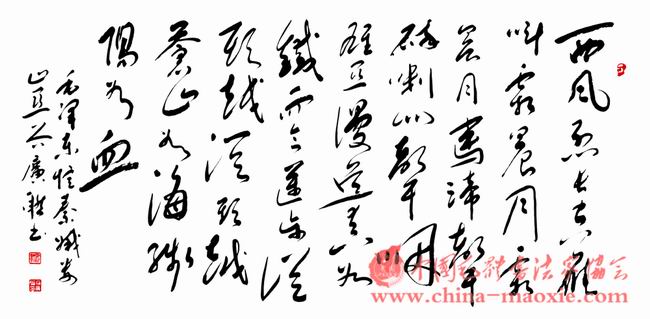 西风烈长空雁
叫霜晨月霜
晨月馬蹄聲
碎喇叭聲咽
雄关漫道真如
鐵而今迈步从
头越从头越
苍山如海残
陽如血
毛泽东忆秦娥娄
山关 廣 书
书法家协会
www.china-maoxie.com